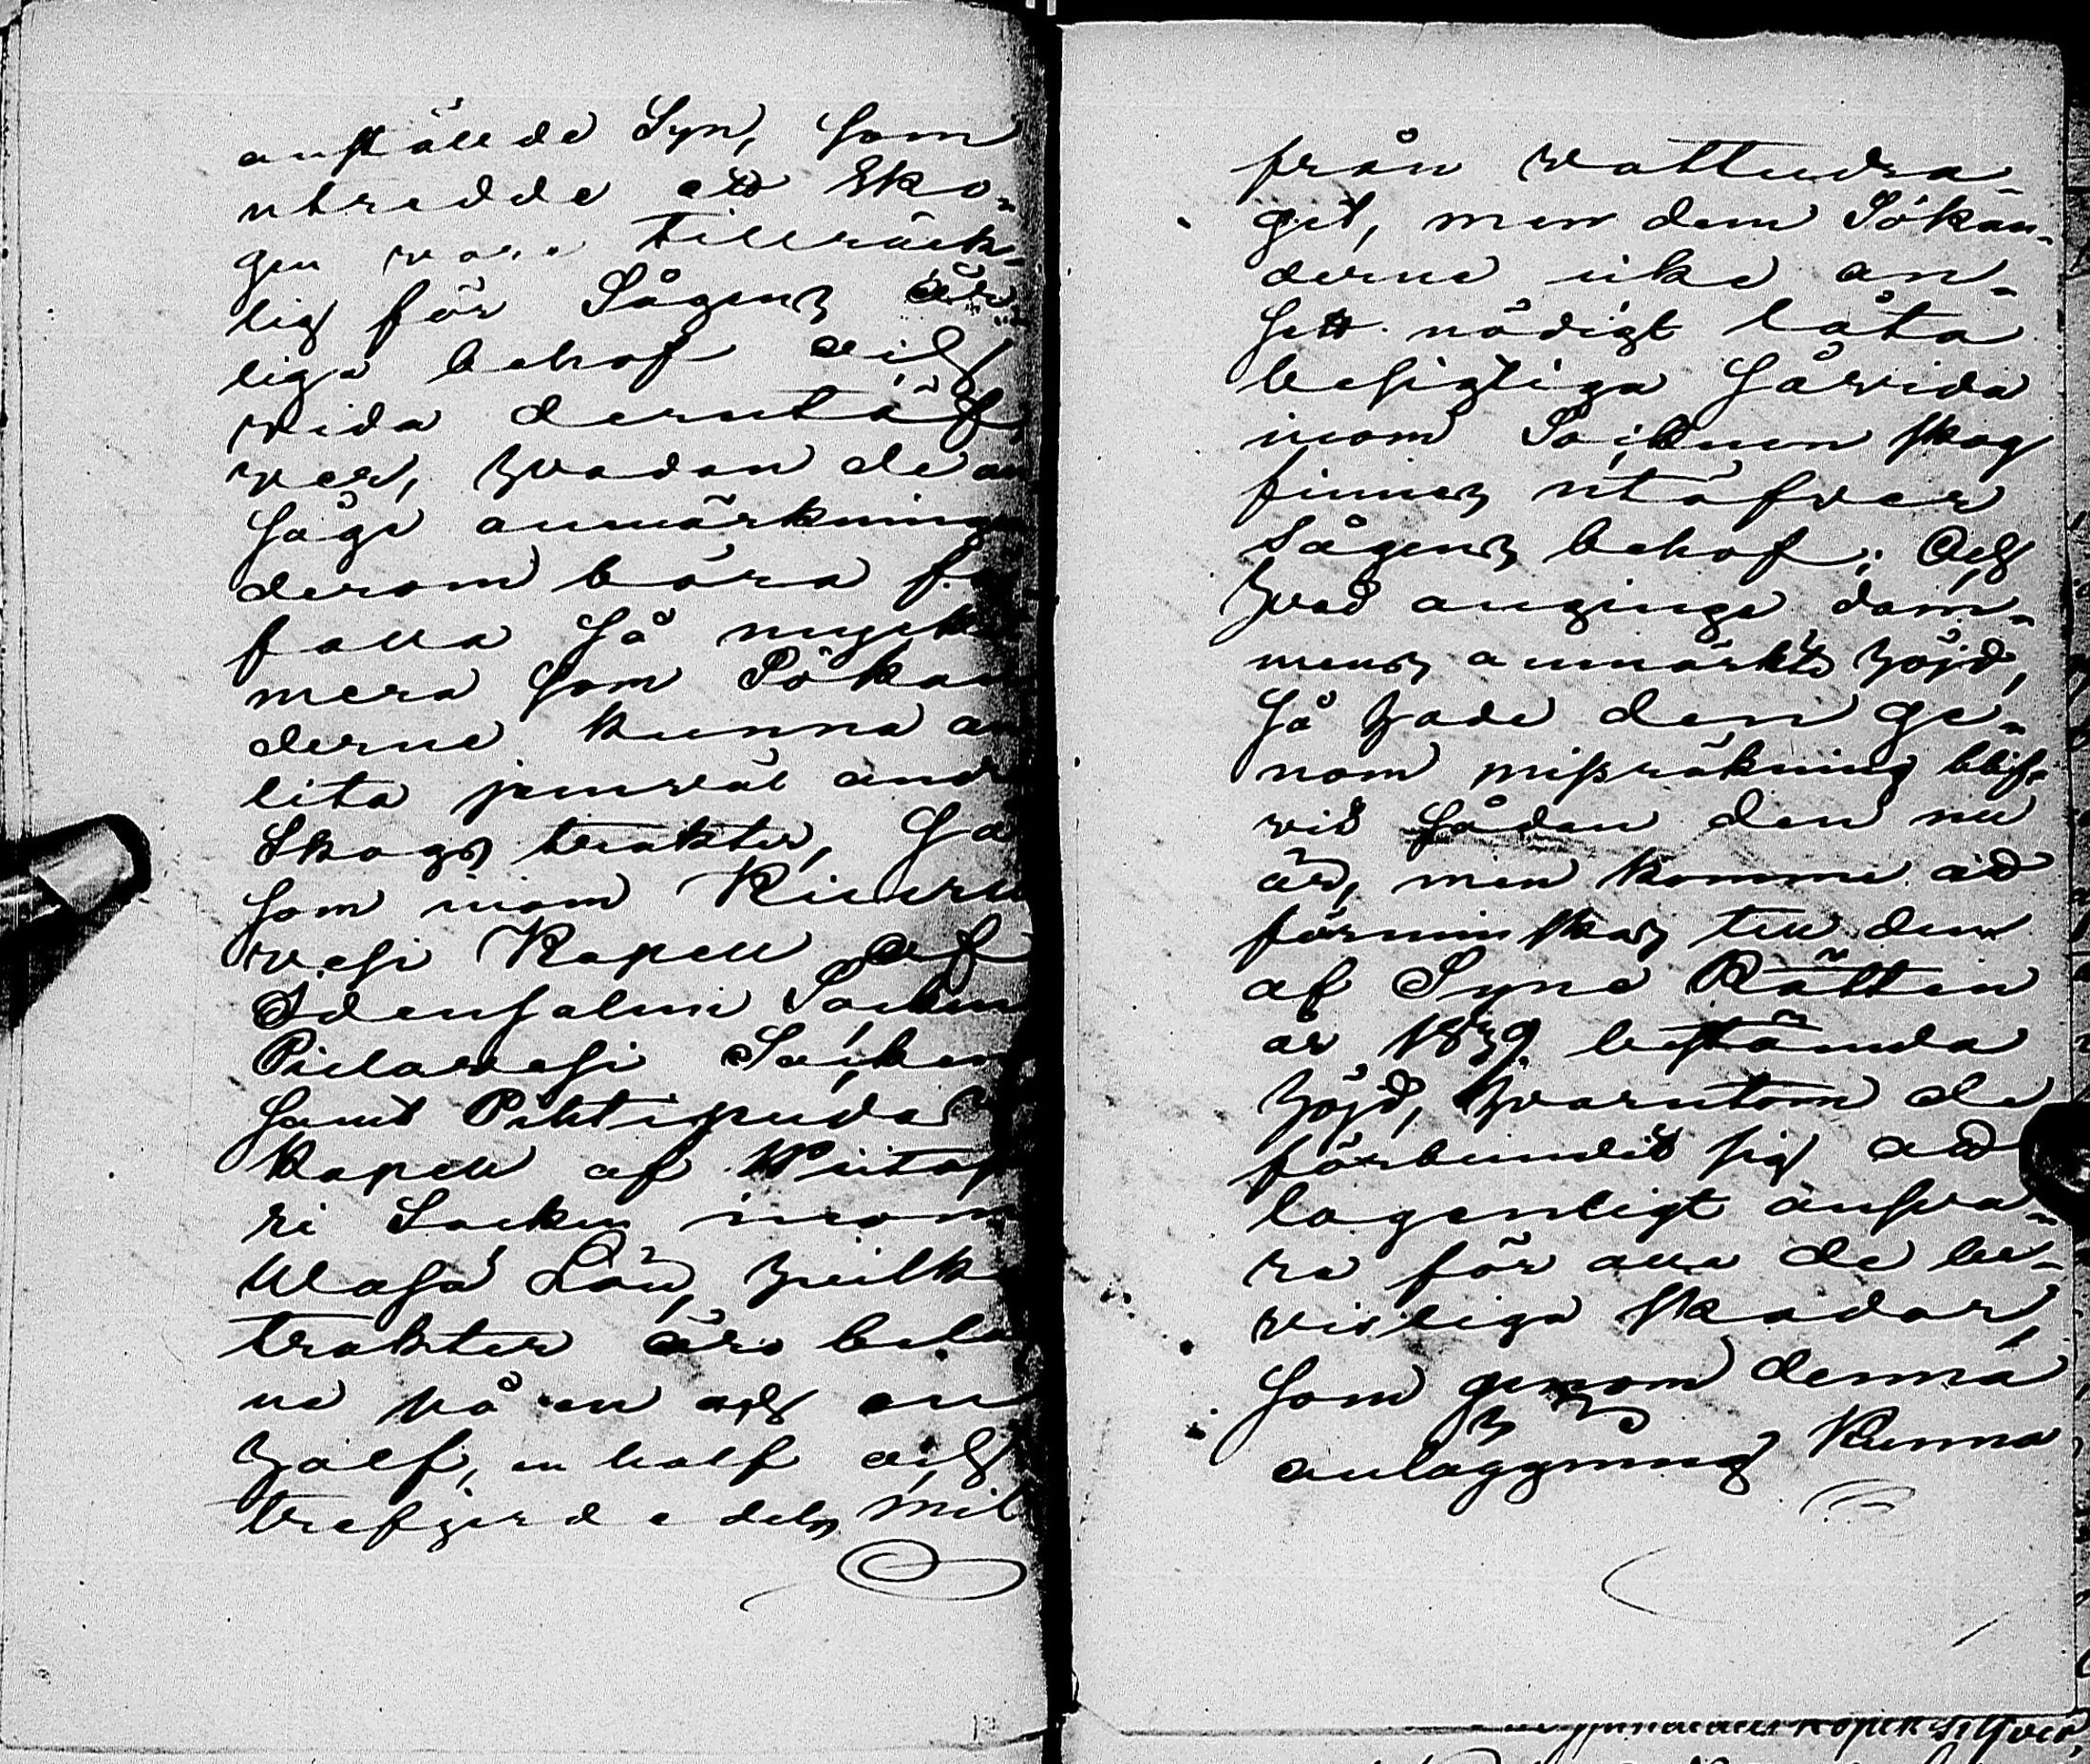 anstäldde Syn, som
utredde att Sko-
gen vore tillräck-
lig för Sågens år-
liga behof och
vida derutöf-
ver, hvadan de an
såge anmärkningen
derom böra för-
falla så mycket
mera som Sökan
derne kunna an
lita jemväl andra
Skogs trakter, så
som inom Kiuru
vesi Kapell af
Idensalmi Socken
Pielavesi Socken
samt Pihtipudas
Kapell af Wiitasa
ri Socken inom
Wasa Län, hvilka
trakter äro beläg
ne två en och en
half, en half och
trefjerdedels mil
från vattudra-
get, men dem Sökan-
derne icke an-
sett nödigt låta
besigtiga såvida
inom Socknen skog
finnes utöfver
Sågens behof; Och
hvad anginge dam-
mens anmärkte höjd,
så hade den ge-
nom missräkning blif-
vit sådan den nu
är, men komme att
förminskas till den
af Syne Rätten
år 1839 bestämda
höjd, hvarutom de
förbundit sig att
lagenligt ansva-
ra för alla de be-
visliga skador,
som genom denna
anläggning kunna